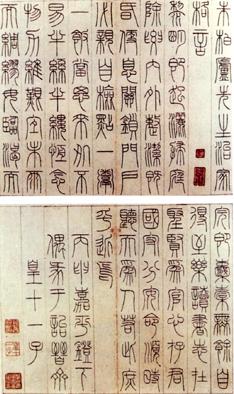 朱柏廬先生治家
格言
黎明即起灑掃庭
除要內外整潔既
昏便息關鎖門戶
必親自檢點一粥
一飯當思來處不
易半絲半縷恒念
物力維艱宜未雨
而綢繆毋臨渴而
完即囊橐無餘自
得至樂讀書志在
聖賢為官心存君
國守分安命順時
聽天為人若此庶
乎近焉
丙嘉平鐙下
偶篆于詒晉齋
皇十一子